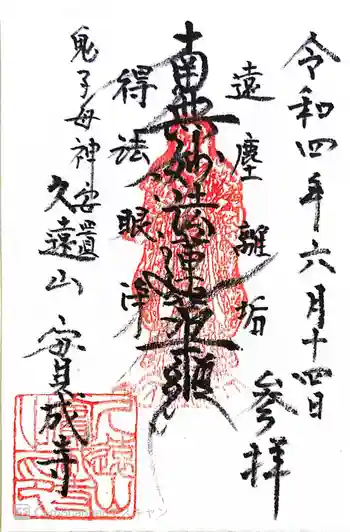 令和四年六月十四日
参拝
遠塵離垢
南無妙法蓮華経
得法眼浄
鬼子母神安置
久遠山 安貞成寺